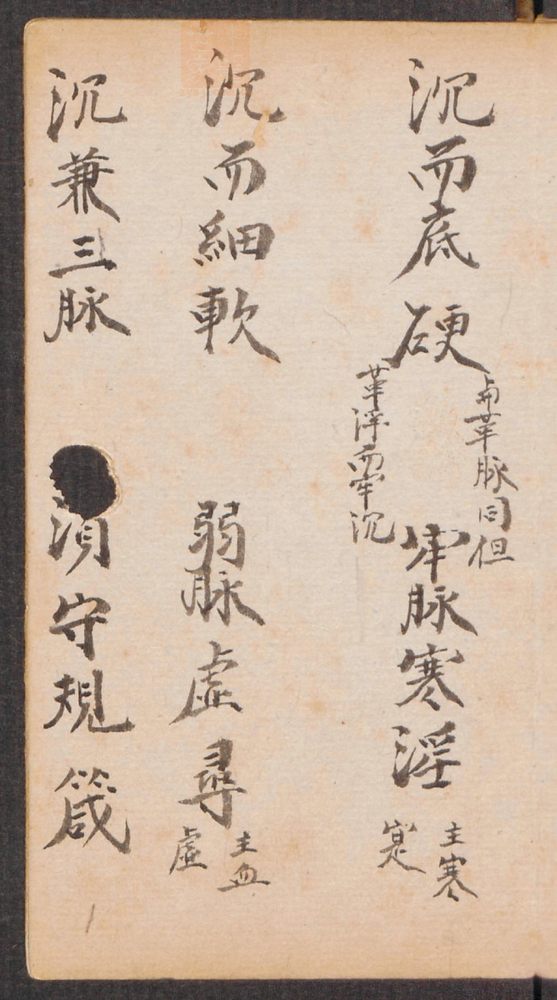 沉而底硬
与革脉同但
革浮而牢沉
牢脉寒淫
主寒
寔
沉而細軟
弱脉虛尋
主血
虛
沉兼三脉
湏守規箴